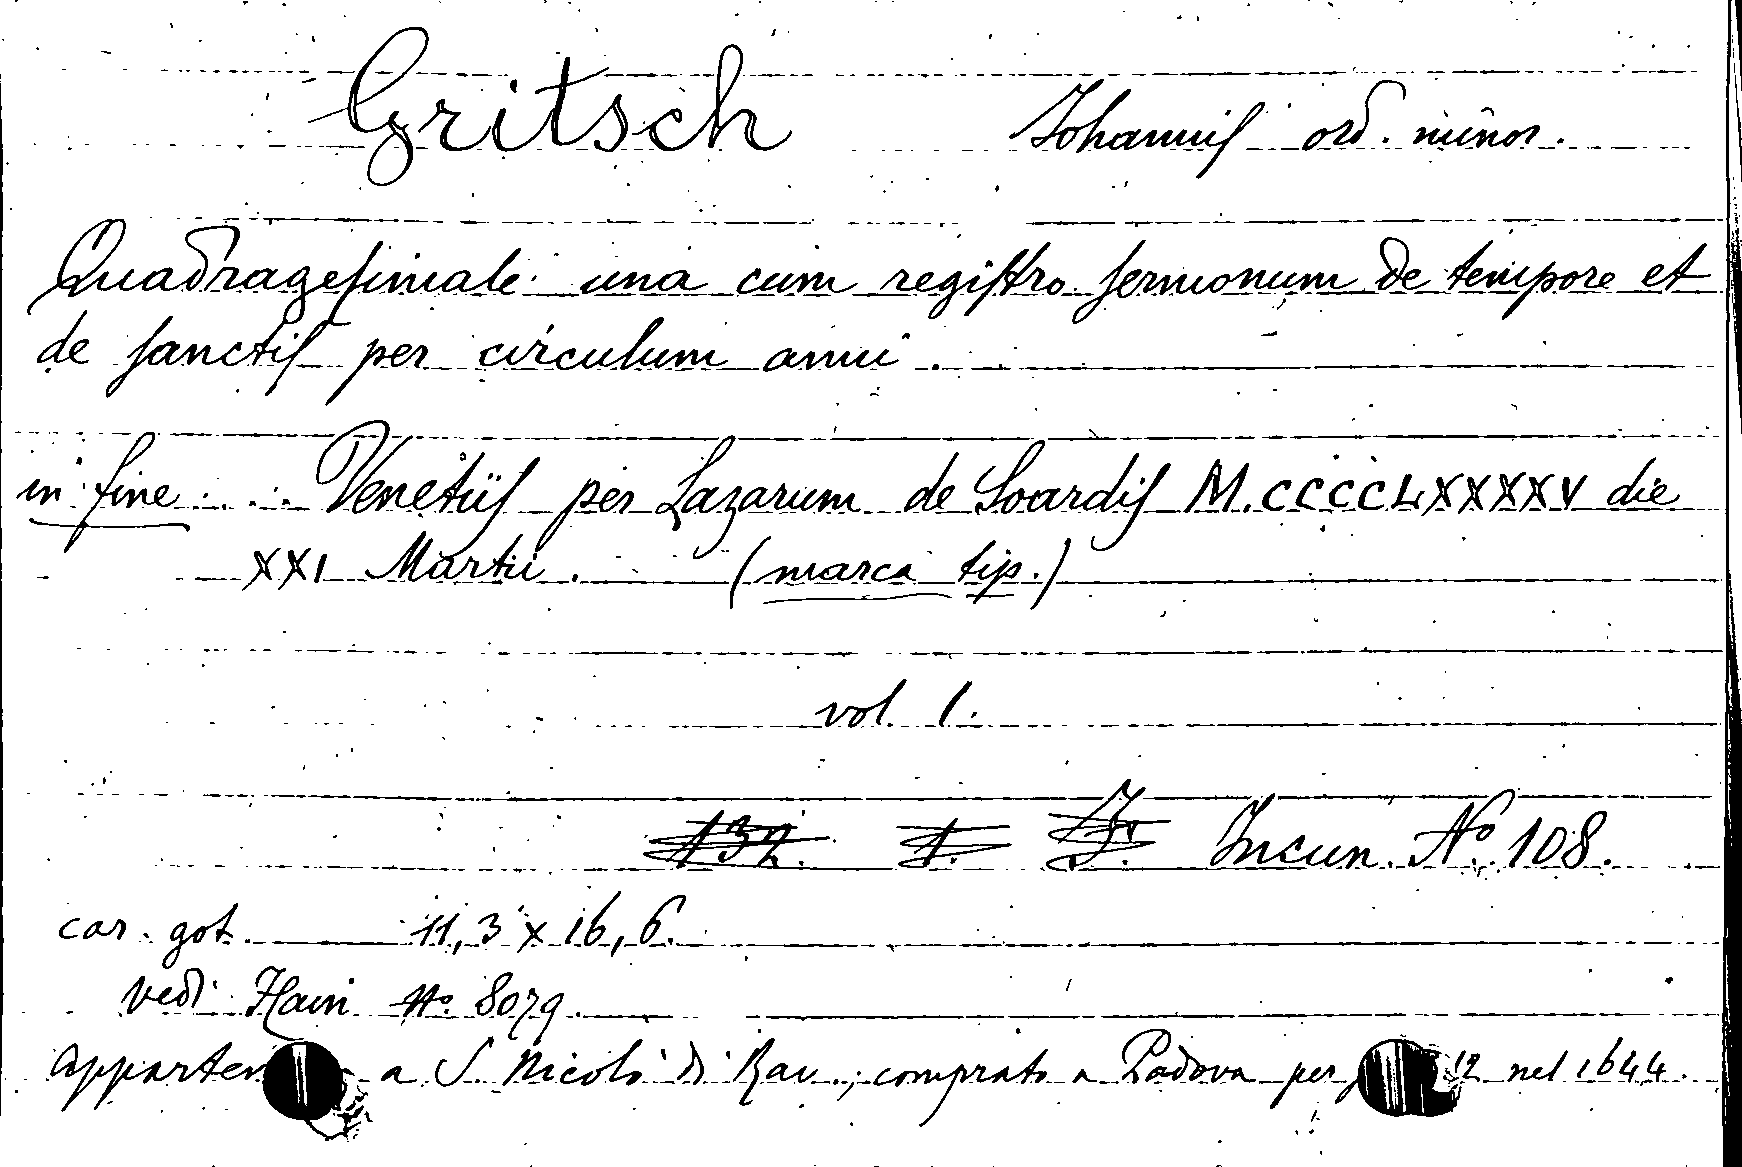 Gritsch Johannis ord. minor.
Quadragesimale una cum registro sermonum de tempore et
de sanctis per circulum anni.
in fine .... Venetiis per Lazarum de Soardis M.CCCCLXXXXV die
XXI Martii. (marca tip.)
vol. 1.
132. 1. F. Incun. No. 108.
car. got. 11,3 x 16,6.
vedi Hain No. 8079.
a S. Nicolò di Rav.; comprato a Padova per 12 nel 1644.